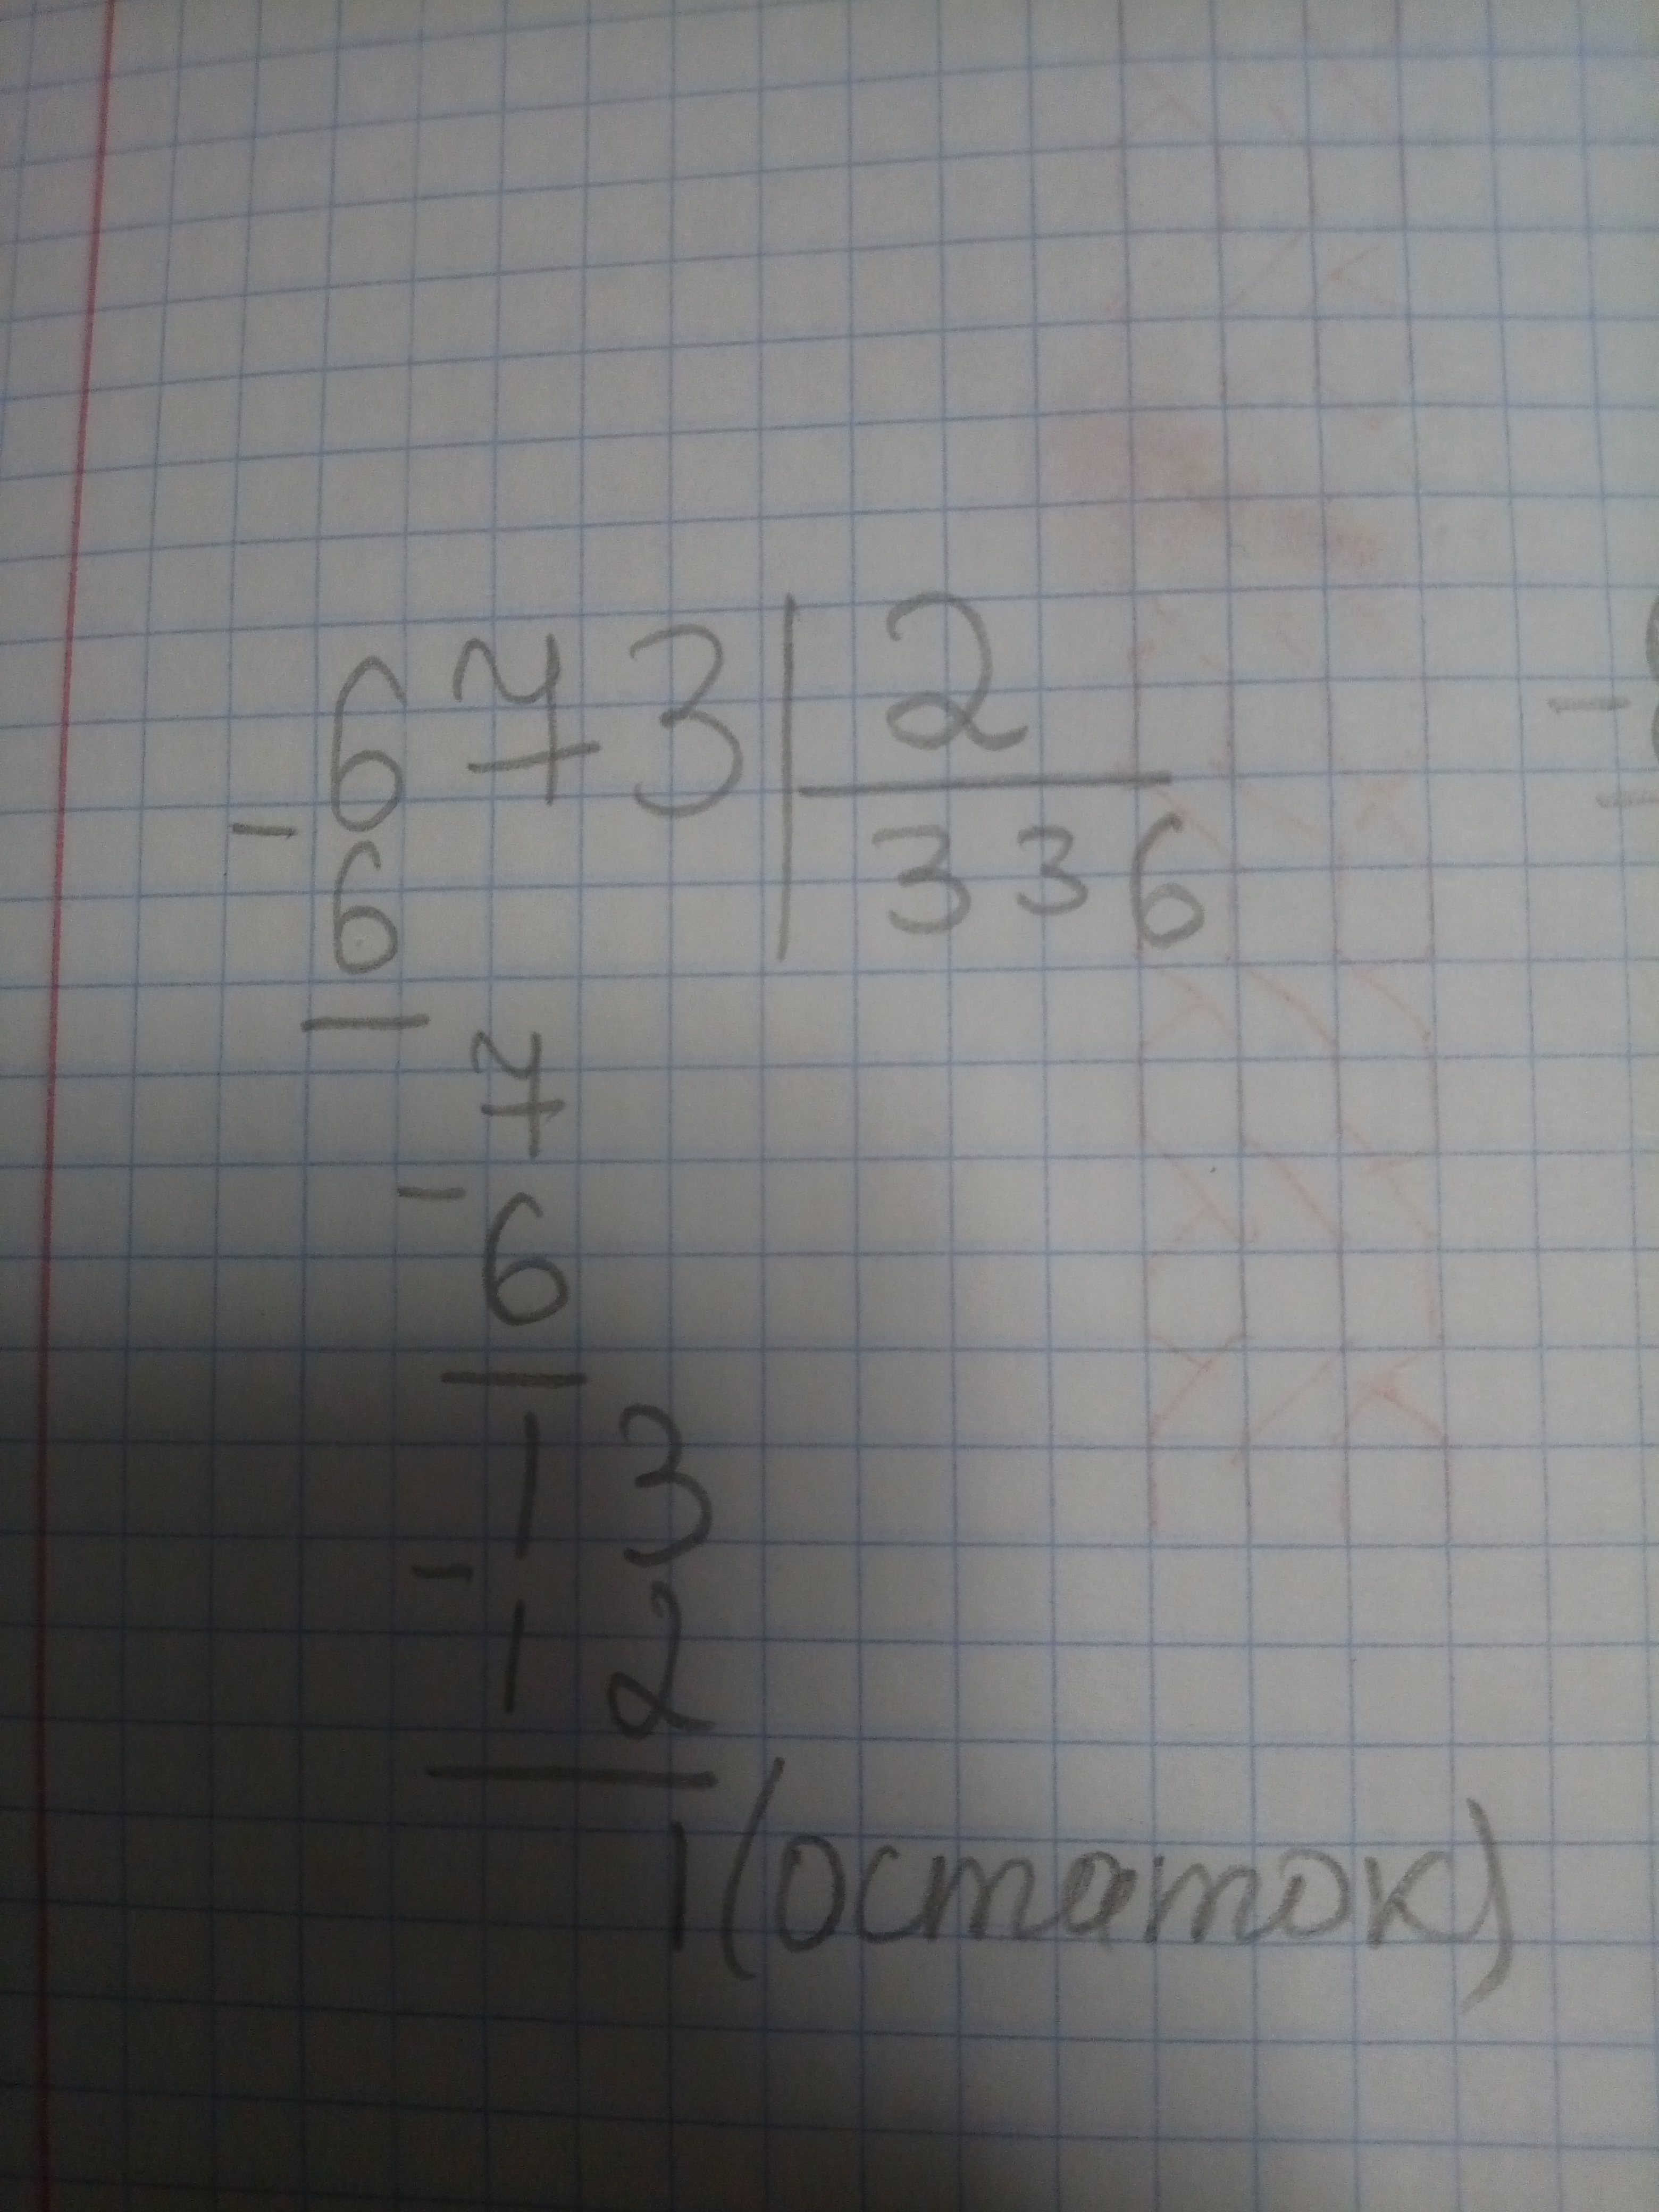 673 2
- 6 336
7
- 6
13
- 12
1 (остаток)